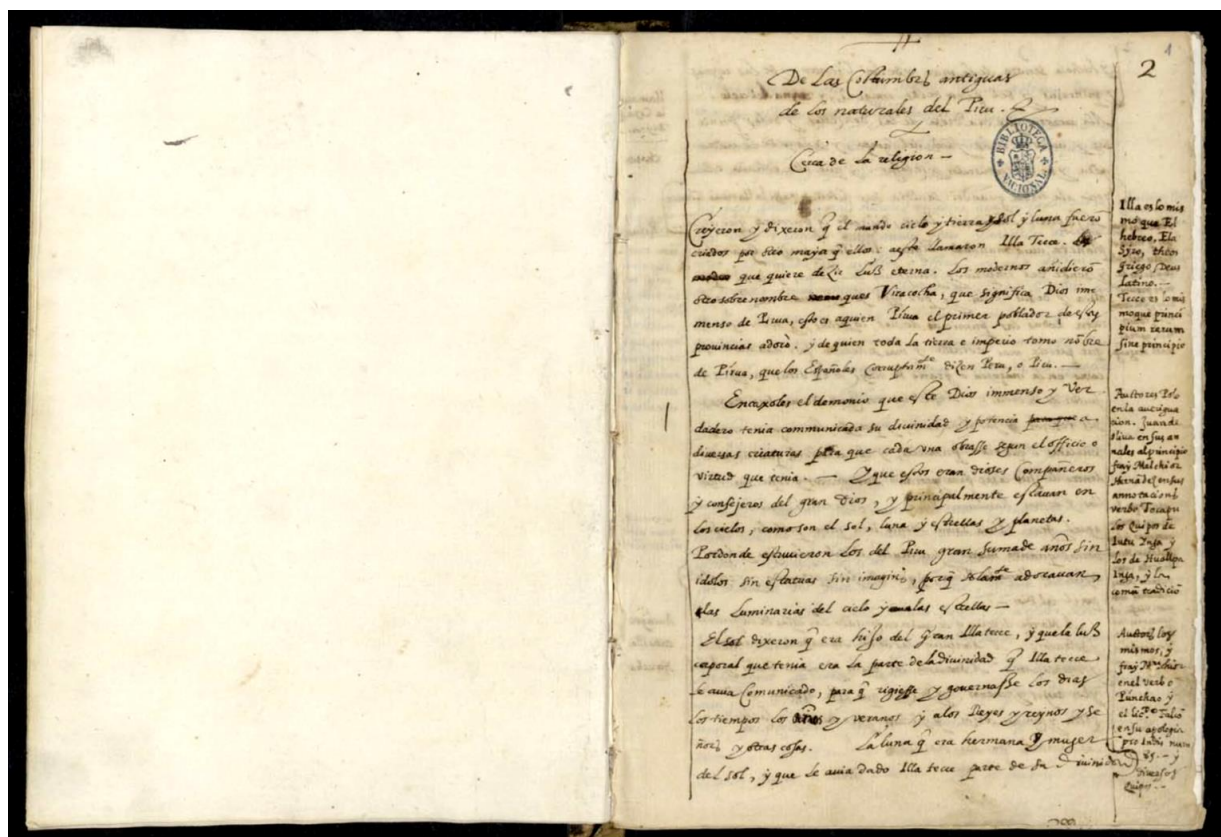 1
2
De Las Costumbrs antiguas
de los naturales del Piru.
BIBLIOTECA NACIONAL
Cerca de la religion —
Creyeron y dixeron q̃ el mundo cielo y tierra y sol y luna fuerõ
criados por otro mayor q̃ ellos: a este llamaron Illa Tecce.
que quiere dezir Luß eterna. Los modernos añidierõ
otro sobrenombre ques Viracocha, que significa Dios im
menso de Pirua, esto es aquien Pirua el primer poblador de estas
provincias adorò. y de quien toda la tierra e imperio tomo nõbre
de Pirua, que los Españoles corruptamte dizen Peru, o Piru. —
Encaxoles el demonio que este Dios immenso y Ver
dadero tenia communicada su divinidad y potencia a
diversas criaturas para que cada una obrasse segun el officio o
virtud que tenia. — Y que estos eran dioses Compañeros
y consejeros del gran Dios, y principalmente estavan en
los cielos, como son el sol, luna y estrellas y planetas.
Por donde estuvieron los del Piru gran suma de años sin
idolos sin estatuas sin imagins, porq̃ solamte adoravan
las Luminarias del cielo y las estrellas —
El sol dixeron q̃ era hijo del Gran Illa tecce, y que la luß
corporal que tenia era la parte de la divinidad q̃ Illa tecce
le avia Comunicado, para q̃ rigiesse y governasse los dias
los tiempos los años y veranos y a los Reyes y reynos y se
ñors y otras cosas. La luna q̃ era hermana y muger
del sol, y que le avia dado Illa tecce parte de su Divinidad
Illa es lo mis
mo que El
hebreo, Ela
Syro, theos
griego, Deus
latino. —
Tecce es lo mis
mo que princi
pium rerum
sine principio
Autores Polo
en la averigua
cion. Juan de
Oliva en sus an
nales al principio
fray Melchior
Hernãdez en sus
annotacions
verbo, Tocapu
los Quipos de
Intu Inga y
los de Huallpa
Inga, y la
comũ tradiciõ
Autors los
mismos, y
fray Mechior
en el verbo
Punchao y
el licdo Falcõ
en su apologia
pro Indis num
85. — y
diversos
quipos —